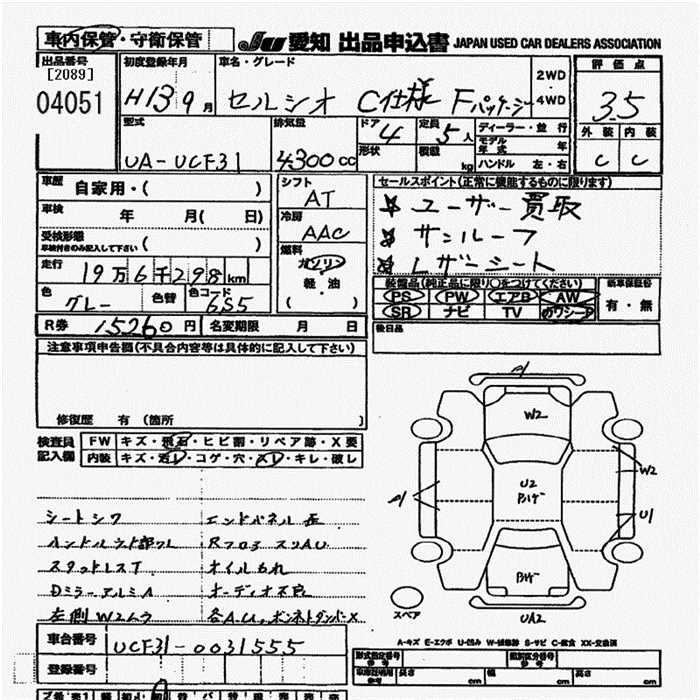 車内保管・守衛保管 JU 愛知 出品申込書 JAPAN USED CAR DEALERS ASSOCIATION
出品番号
[2089]
04051
初度登録年月
H13 9月
車名・グレード
セルシオ C仕様 Fパッケージ
2WD
4WD
評価点
3.5
外装 内装
C C
型式
UA-UCF31
排気量
4300cc
ドア 4
形状
定員 5人
積載 kg
ディーラー・並行
モデル年式 年
ハンドル 左・右
車歴 自家用・( )
車検 年 月( 日)
受検形態
車検付きのみ記入して下さい ( )
走行 19万6千298km
色 グレー 色替 色コード 6S5
R券 15260円 名変期限 月 日
シフト
AT
冷房
AAC
燃料
ガソリン
軽・油
( )
セールスポイント(正常に機能するものに限ります)
ユーザー買取
サンルーフ
レザーシート
装備品(純正品に限り○をつけてください) 新車保証書
PS PW エアB AW 有・無
SR ナビ TV カワシート
後日品
注意事項申告欄(不具合内容等は具体的に記入して下さい)
修復歴 有 (箇所 )
検査員記入欄
FW キズ・飛石・ヒビ割・リペア跡・X要
内装 キズ・汚レ・コゲ・穴・スレ・キレ・破レ
シートシワ エンドパネル
スタッドレスT オイルもれ
DミラーアルミA オーディオ不良
左側W2ムラ
車台番号 UCF31-0031555
登録番号
W2
U2
W2
U1
UA2
スペア
A-キズ E-エクボ U-凹み W-補修跡 S-サビ C-腐食 XX-交換済
型式指定番号
類別区分番号
長さ cm 幅 cm 高さ cm